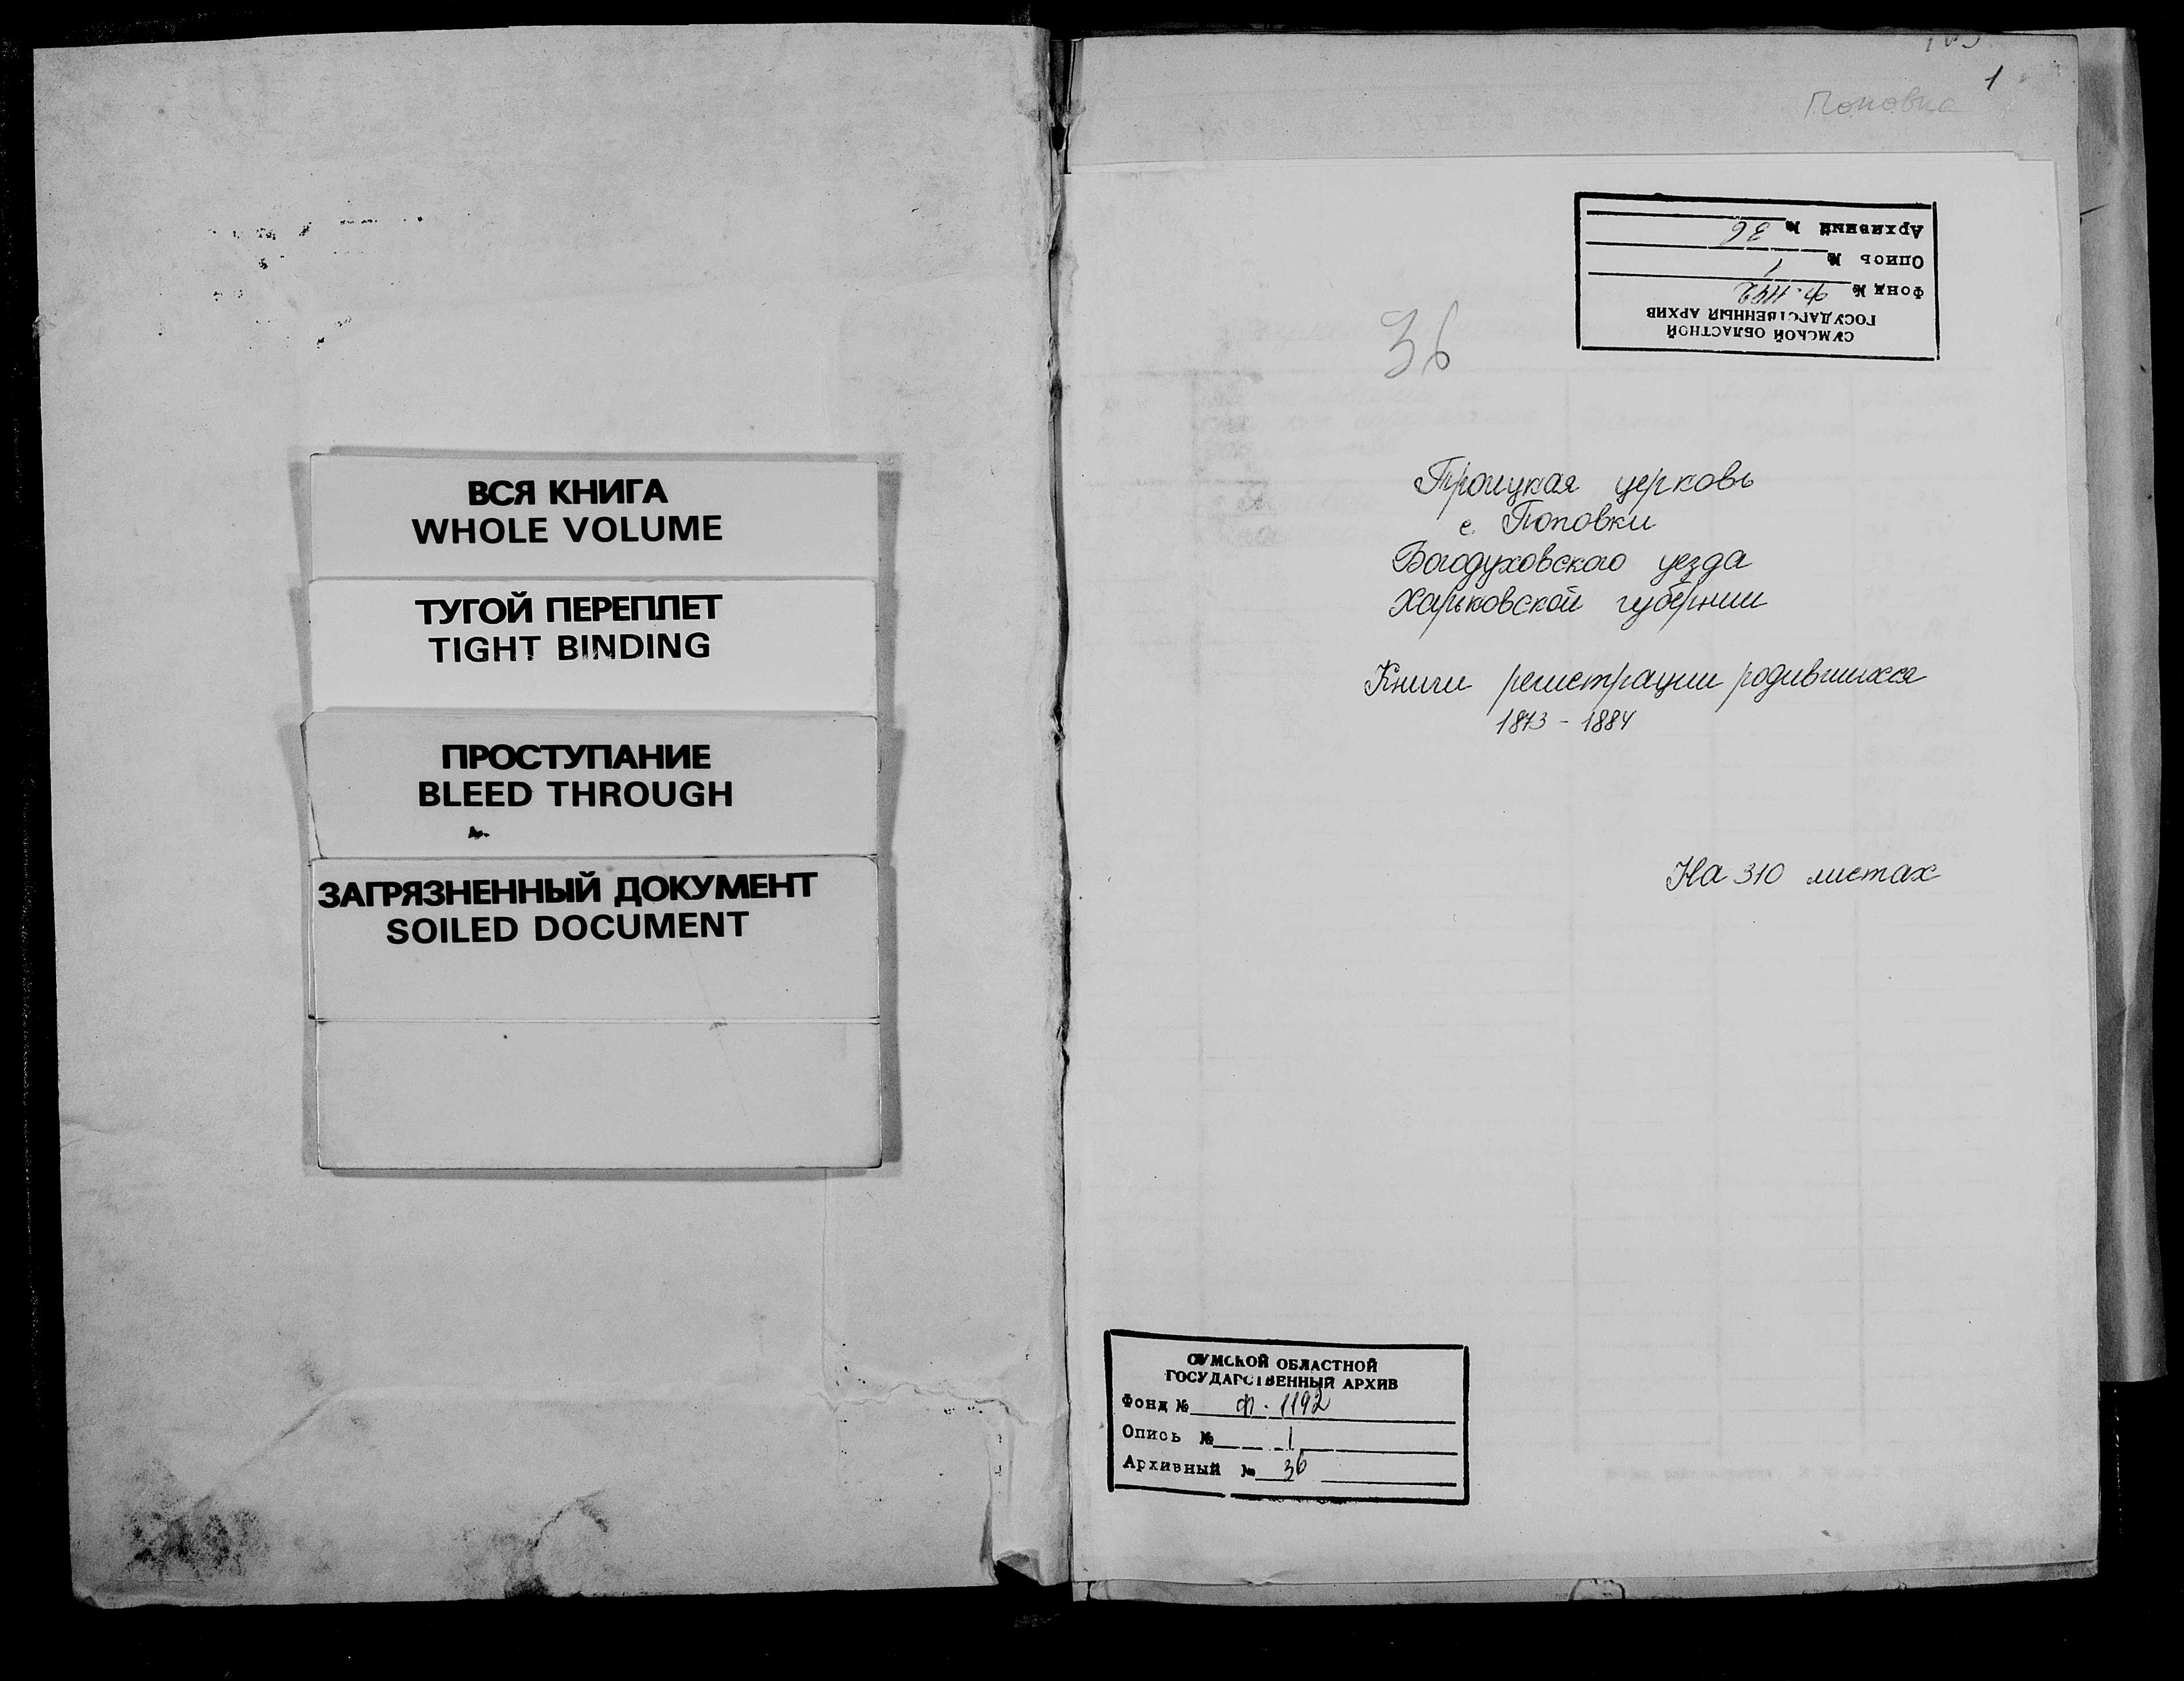 ВСЯ КНИГА
WHOLE VOLUME
ТУГОЙ ПЕРЕПЛЕТ
TIGHT BINDING
ПРОСТУПАНИЕ
BLEED THROUGH
ЗАГРЯЗНЕННЫЙ ДОКУМЕНТ
SOILED DOCUMENT
1
Поповка
СУМСКОЙ ОБЛАСТНОЙ
ГОСУДАРСТВЕННЫЙ АРХИВ
Фонд № Ф-1192
Опись № 1
Архивный № 36
36
Троицкая церковь
с. Поповки
Богодуховского уезда
Харьковской губернии
Книги регистрации родившихся
1873 - 1884
На 310 листах
СУМСКОЙ ОБЛАСТНОЙ
ГОСУДАРСТВЕННЫЙ АРХИВ
Фонд № Ф-1192
Опись № 1
Архивный № 36